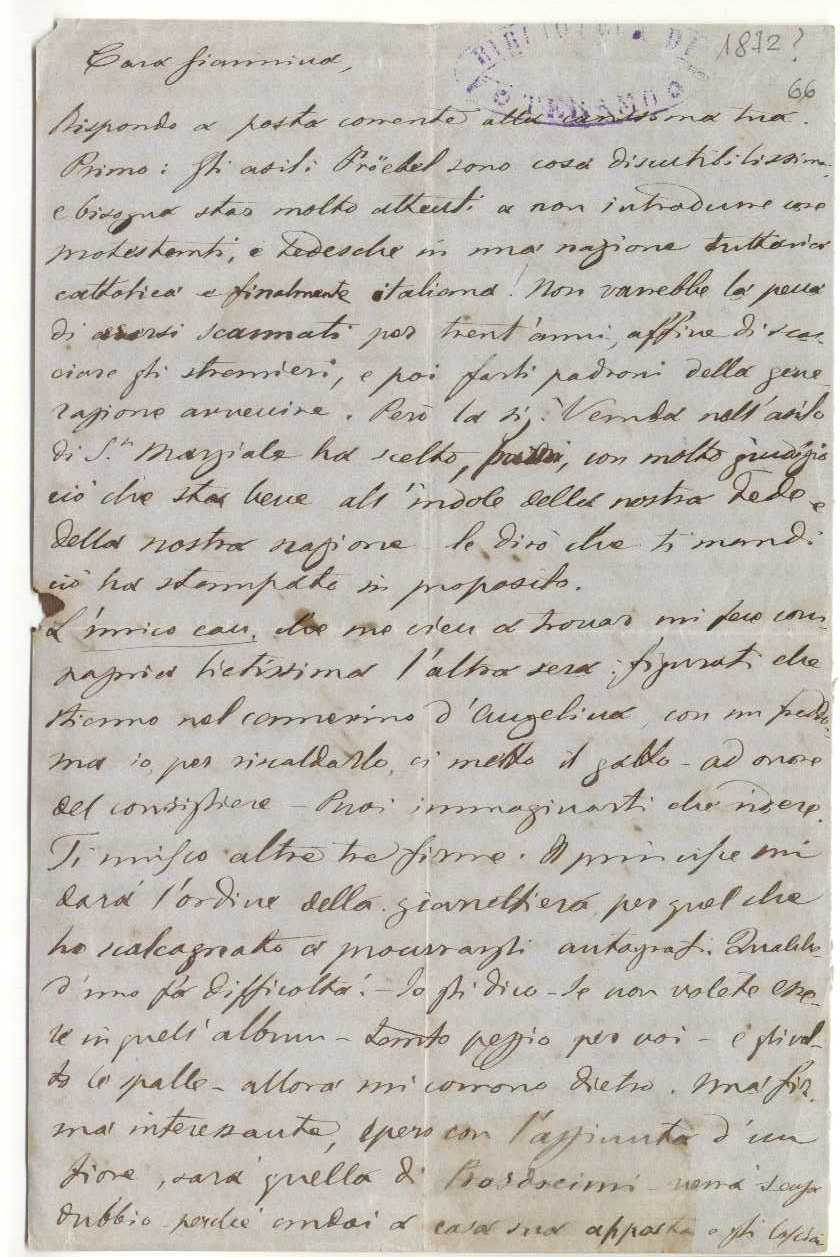 BIBLIOTECA DI
TERAMO
1872?
66
Cara Giannina,
Rispondo a posta corrente alla carissima tua.
Primo: gli asili Fröebel sono cosa discutibilissima,
e bisogna star molto attenti a non introdurre cose
protestanti, e tedesche in una nazione tuttavia
cattolica e finalmente italiana! Non varrebbe la pena
di esersi scannati per trent'anni, affine di scac-
ciare gli stranieri, e poi farli padroni della gene-
razione avvenire. Però la Si. Vemda nell'asilo
di S.n Marziale ha scelto, con molto giudizio
ciò che sta bene all'indole della nostra fede e
della nostra nazione le dirò che ti mandi
ciò ha stampato in proposito.
L'unico can, che me vien a trovar mi fece com-
pagnia lietissima l'altra sera: figurati che
stiamo nel camerino d'Angelina, con un freddo,
ma io, per riscaldarlo, ci metto il gatto - ad onore
del consigliere - Puoi immaginarti che ridere.
Ti unisco altre tre firme. Il principe mi
darà l'ordine della giarrettiera, per quel che
ho scalcagnato a procurargli autografi. Qualche-
d'uno fa difficoltà! - Io gli dico - Se non volete esse-
re in quell'album - tanto peggio per voi - e gli vol-
to le spalle - allora mi corrono dietro. Una fir-
ma interessante, spero con l'aggiunta d'un
fiore, sarà quella di Prosdocimi - verrà senza
dubbio - perchè andai a casa sua apposta e gli lasciai